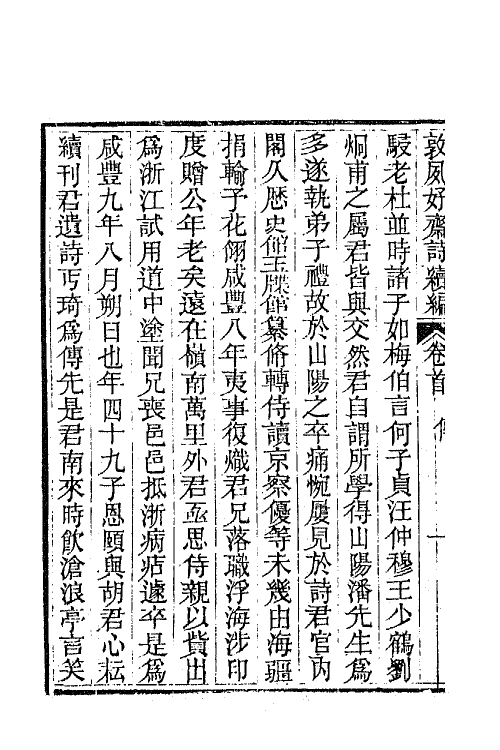 敦夙好齋詩續編 卷首 傳 一
駸老杜並時諸子如梅伯言何子貞汪仲穆王少鶴劉
炯甫之屬君皆與交然君自謂所學得山陽潘先生爲
多遂執弟子禮故於山陽之卒痛惋屢見於詩君官內
閣久歷史館玉牒館纂脩轉侍讀京察優等未幾由海疆
捐輸予花翎咸豐八年夷事復熾君兄落職浮海涉印
度贈公年老矣遠在嶺南萬里外君亟思侍親以貲出
爲浙江試用道中塗聞兄喪邑邑抵浙病痁遽卒是爲
咸豐九年八月朔日也年四十九子恩頤與胡君心耘
續刊君遺詩丐琦爲傳先是君南來時飲滄浪亭言笑